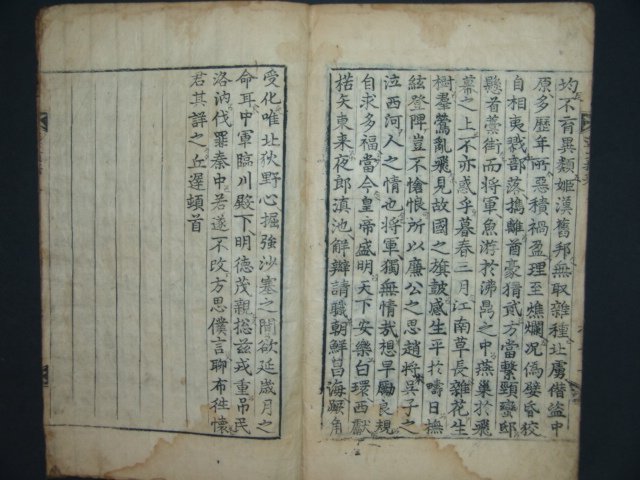 均不育異類姬漢舊邦無取雜種北虜僭盜中
原多歷年所惡積禍盈理至燋爛况偽嬖昏狡
自相夷戮部落攜離酋豪猜貳方當繫頸蠻邸
懸首藁街而將軍魚游於沸鼎之中燕巢於飛
幕之上不亦惑乎暮春三月江南草長雜花生
樹羣鶯亂飛見故國之旗鼓感生平於疇日撫
絃登陴豈不愴悢所以廉公之思趙將吳子之
泣西河人之情也將軍獨無情哉想早勵良規
自求多福當今皇帝盛明天下安樂白環西獻
楛矢東来夜郎滇池解辮請職朝鮮昌海蹶角
受化唯北狄野心掘強沙塞之間欲延歲月之
命耳中軍臨川殿下明德茂親総玆戎重吊民
洛汭伐罪秦中若遂不改方思僕言聊布徃懷
君其詳之丘遲頓首